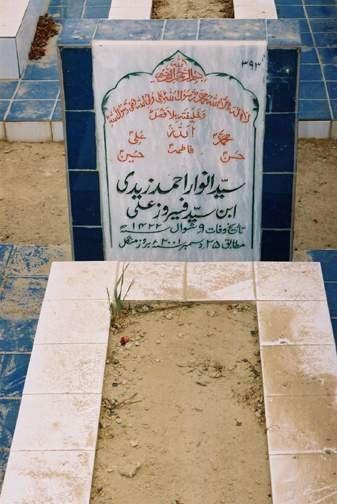 ۳۹۳
بسم اللہ الرحمن الرحیم
لا الہ الا اللہ محمد رسول اللہ علی ولی اللہ وصی رسول اللہ
وخلیفتہ بلا فصل
محمدؐ اللہ علیؑ
حسنؑ فاطمہؑ حسینؑ
سید انوار احمد زیدی
ابن سید فیروز علی
تاریخ وفات ۹ شوال ۱۴۲۲ھ
مطابق ۲۵ دسمبر ۲۰۰۱ء بروز منگل